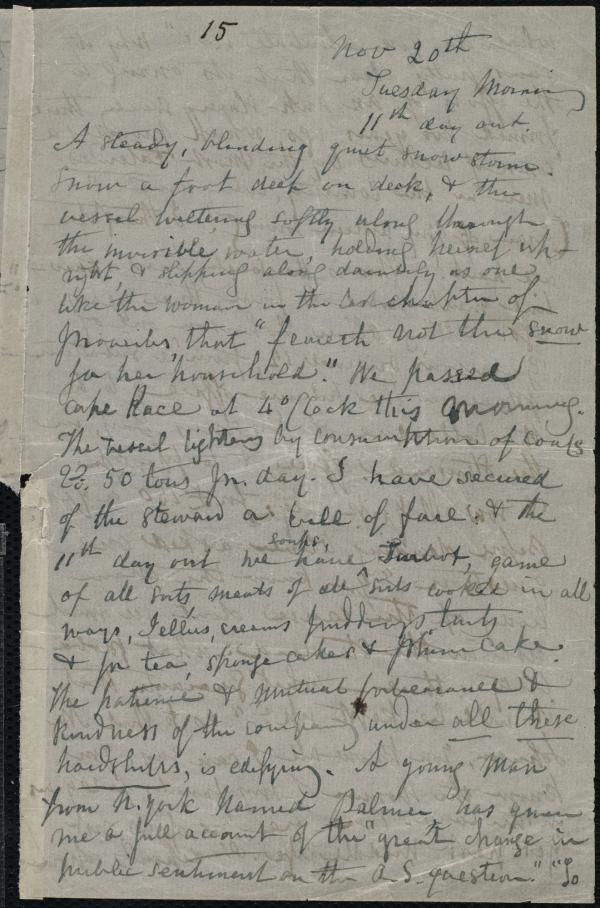 15
Nov 20th
Tuesday Morning
11th day out.
A steady, blinding quiet snow storm.
Snow a foot deep on deck, & the
vessel weltering softly along through
the invisible water, holding herself up-
right, & slipping along daintily as one
like the woman in the last chapter of
Proverbs that "feareth not the snow
for her household." We passed
Cape Race at 4 o'clock this morning.
The vessel lightens by consumption of coals
50 tons pr. day. I have secured
of the steward a bill of fare. & the
11th day out we have soups, Turbot, game
of all sorts, meats of all sorts cooked in all
ways, Jellies, creams puddings, tarts
& for tea, sponge cakes & plum cake.
The patience & mutual forbearance &
kindness of the company under all these
hardships, is edifying. A young man
from N. York named Palmer, has given
me a full account of the "great change in
public sentiment on the A.S. question." "So